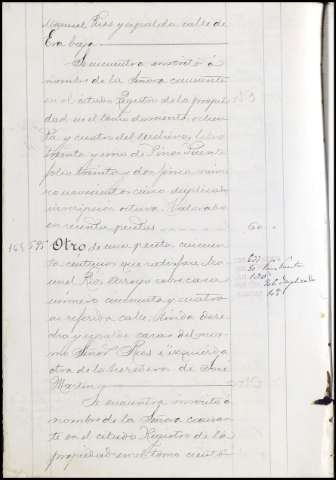 Manuel Rios y espalda calle de
Era baja
Se encuentra inscrito á
nombre de la Señora causante
en el citado Registro de la propie
dad en el tomo doscientos ochen
ta y cuatro del archivo, libro
treinta y uno de Pinos Puente
folio treinta y dos, finca núme
ro novecientos cinco duplicado
inscripción octava. Valorado
en sesenta pesetas 60
Otro de una peseta cincuen
ta céntimos que satisface Ma
nuel Rios Arroyo sobre casa
número cincuenta y cuatro
de referida calle, linda dere
cha y espalda casas del mis
mo Señor Rios é izquierda
otra de herederos de José
Martin
Se encuentra inscrito á
nombre de la Señora causan
te en el citado Registro de la
propiedad en el tomo ciento